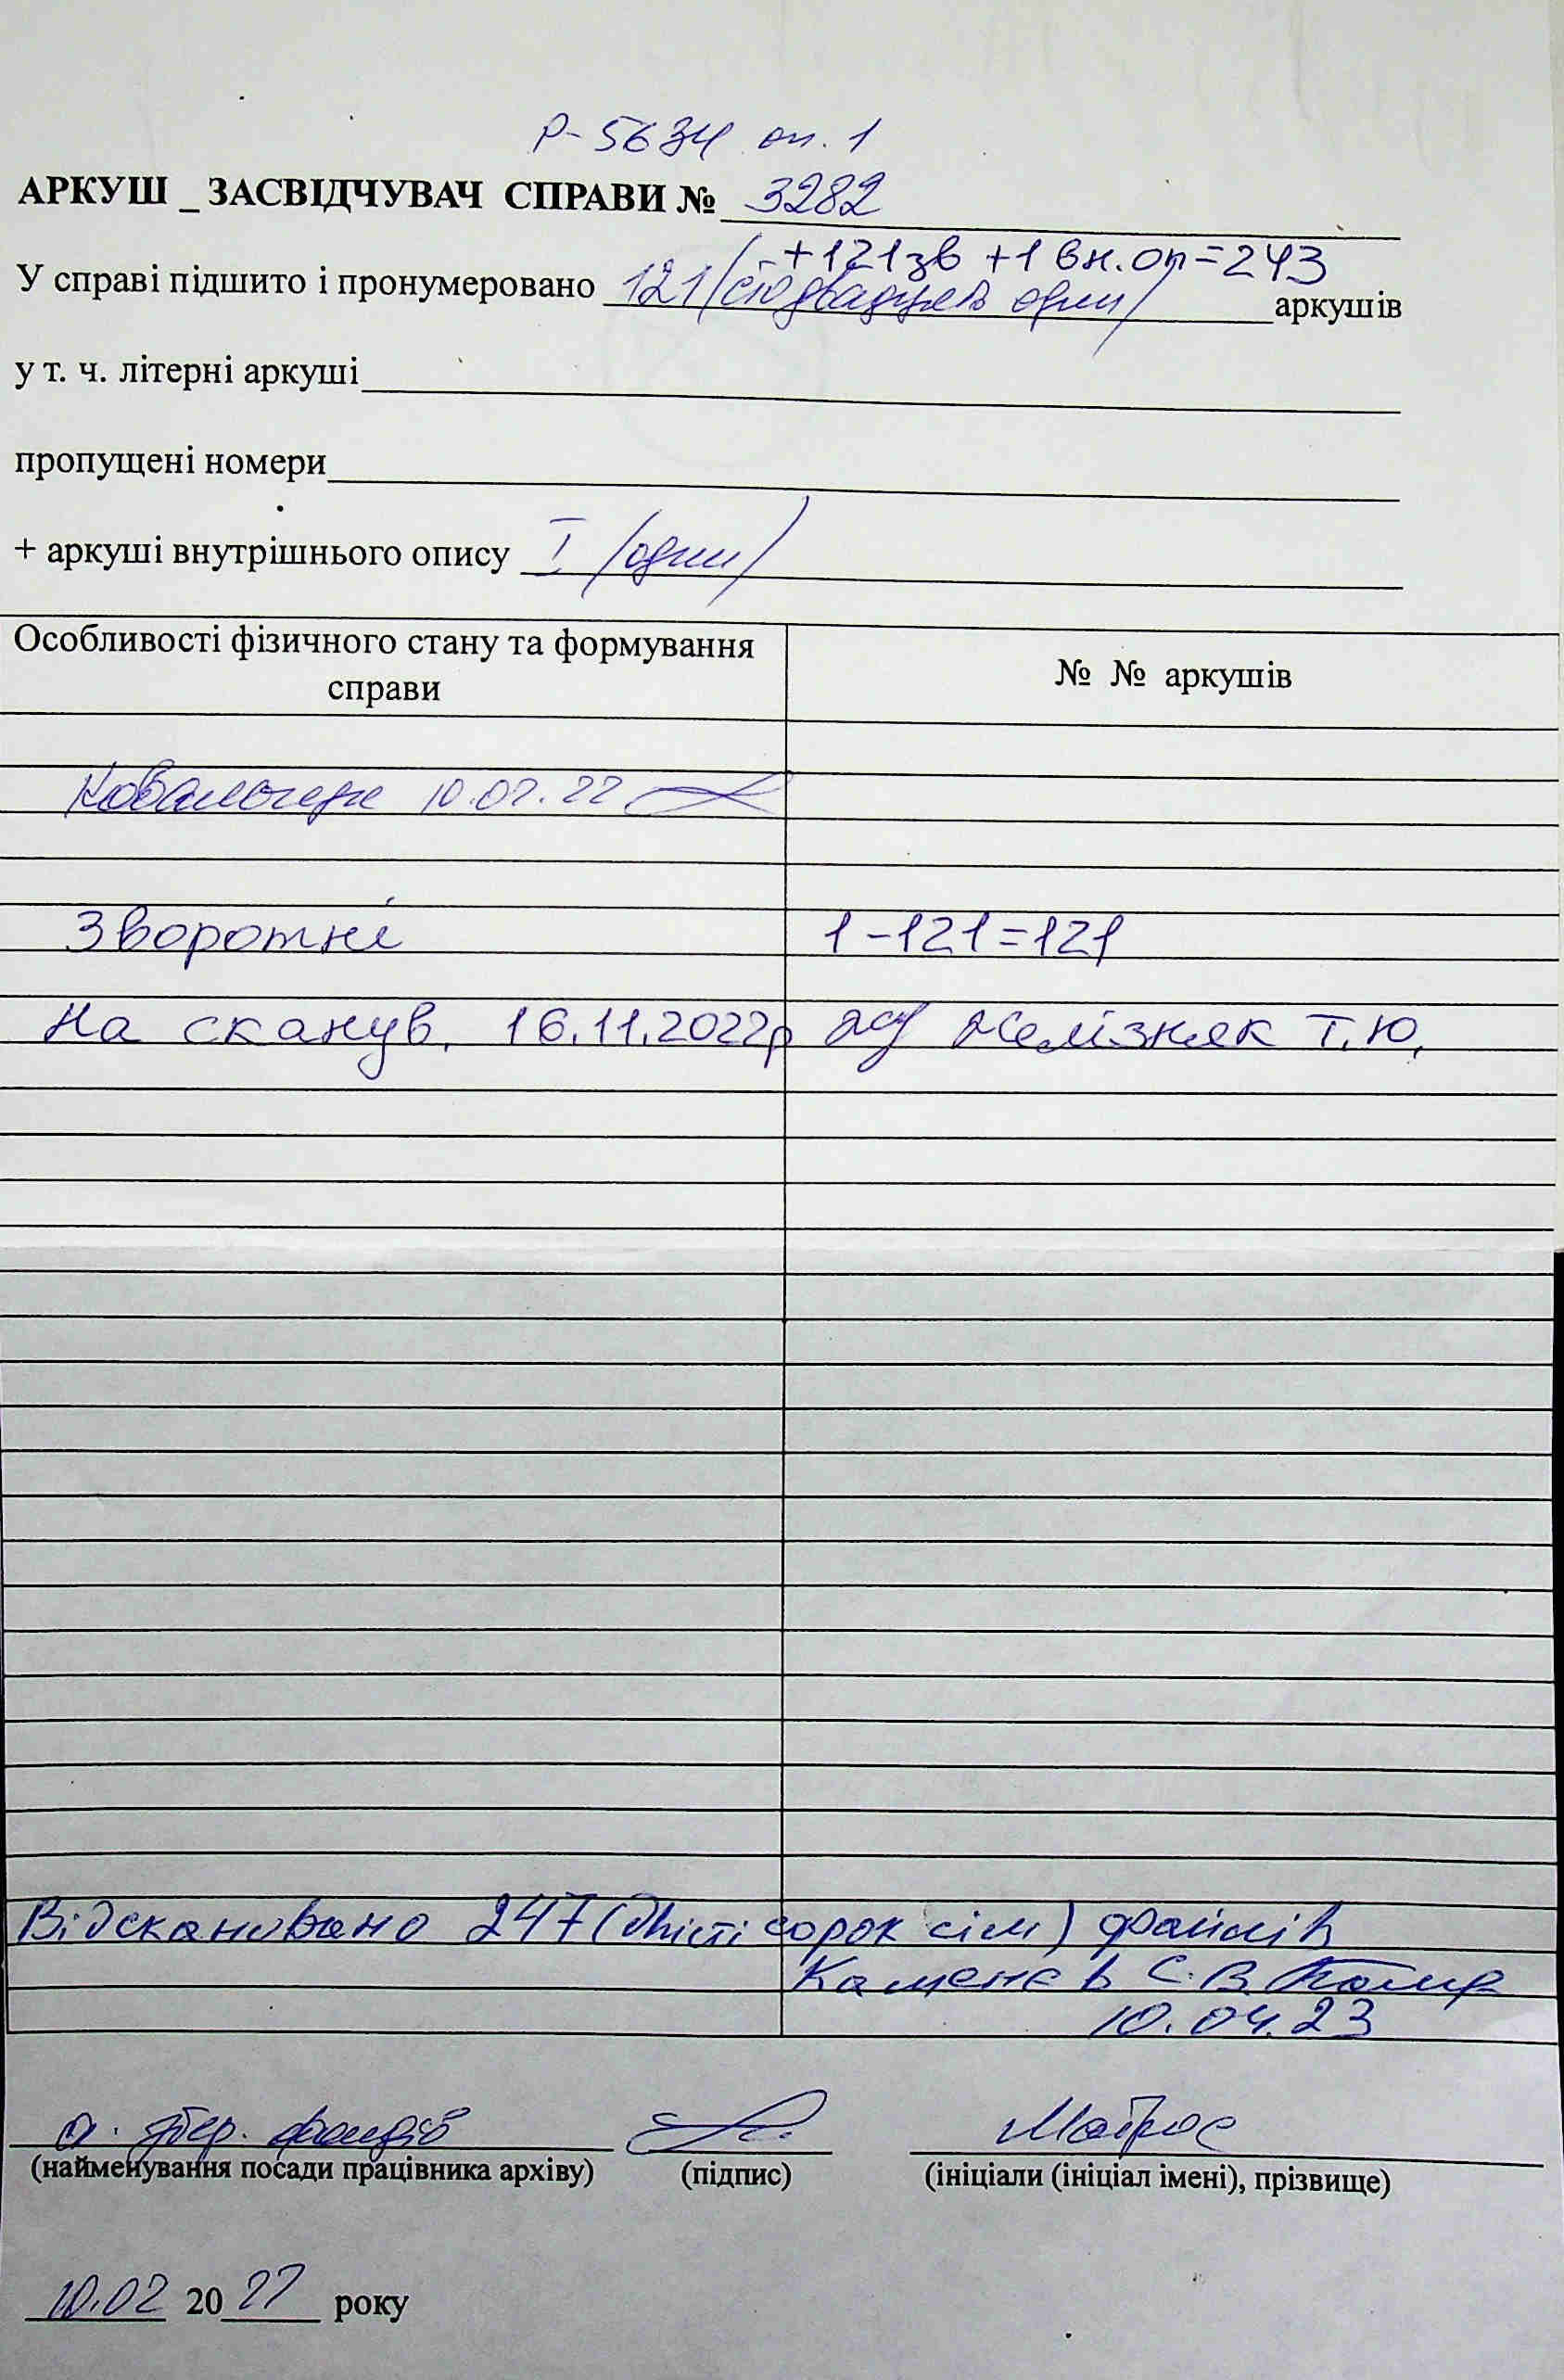 Р-5634 оп. 1
АРКУШ _ ЗАСВІДЧУВАЧ СПРАВИ № 3282
+121зв +1 вн.оп=243
У справі підшито і пронумеровано 121/сто двадцять один/ аркушів
у т. ч. літерні аркуші
пропущені номери
+ аркуші внутрішнього опису I /один/
Особливості фізичного стану та формування справи
№ № аркушів
10.02.22
Зворотні 1-121=121
На сканув. 16.11.2022р Желізняк Т.Ю.
Відскановано 247 (двісті сорок сім) файлів
Каменєв С.В.
10.04.23
збер. фондів
Матрос
(найменування посади працівника архіву) (підпис) (ініціали (ініціал імені), прізвище)
10.02 2022 року